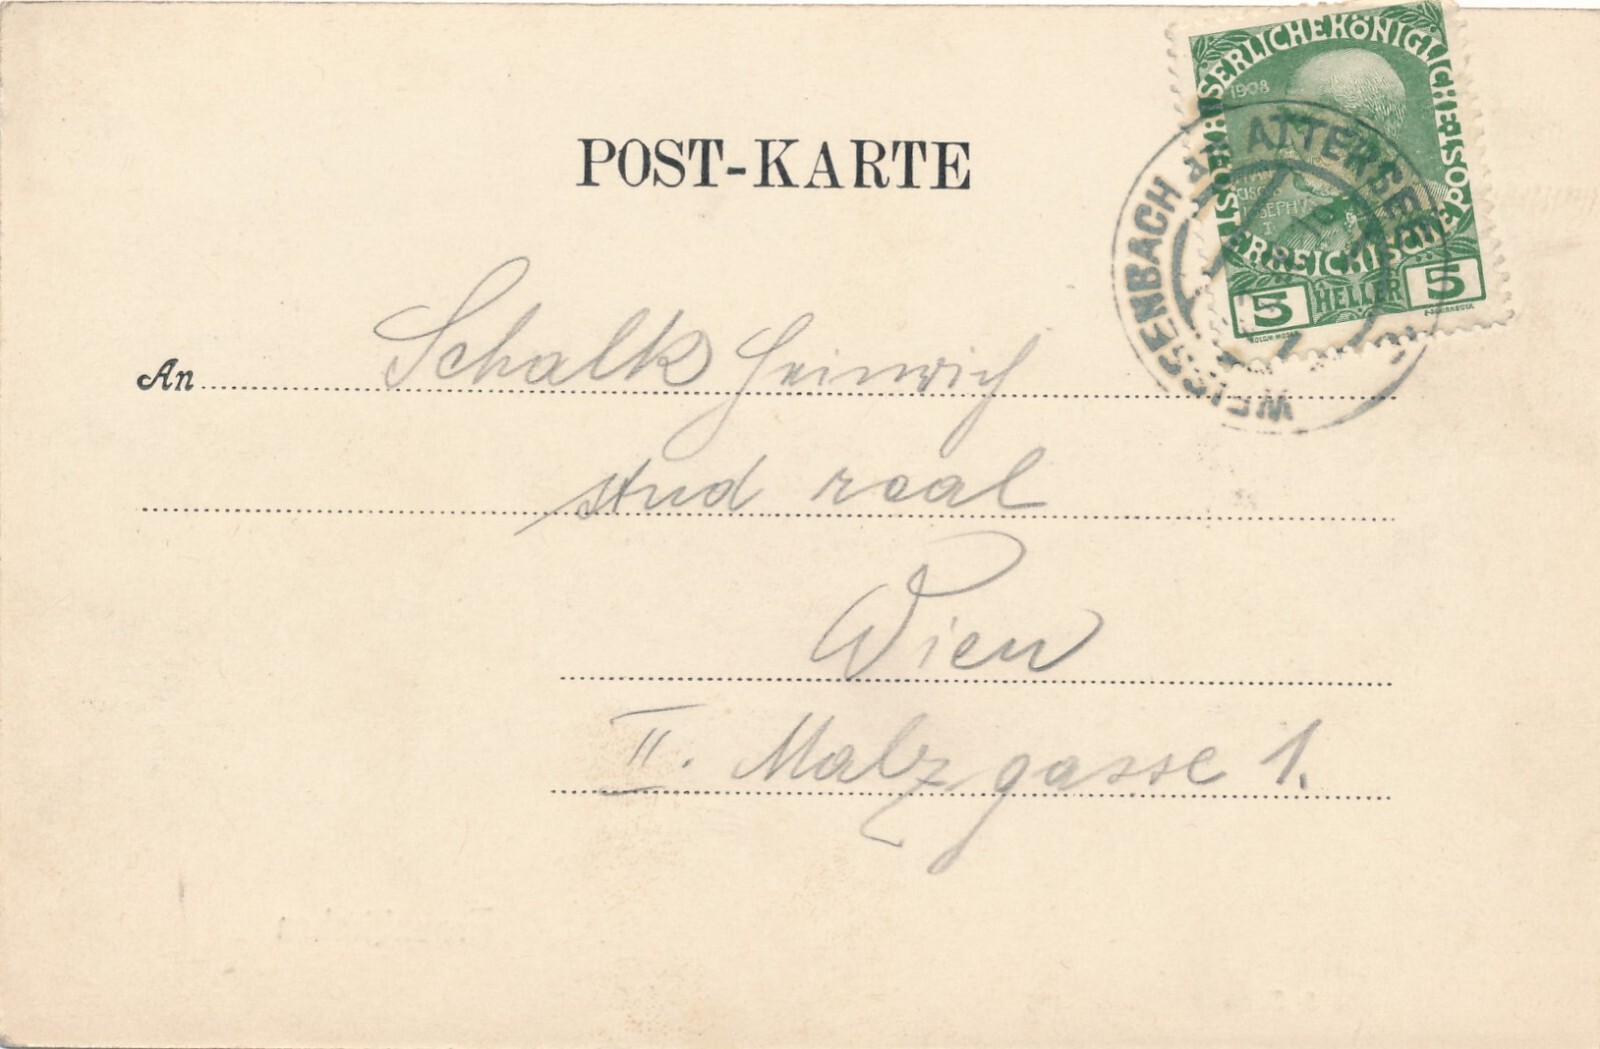 POST-KARTE
KAISERLICHEKÖNIGLICHE ÖSTERREICHISCHE POST
1908
5 HELLER 5
WEISSENBACH AM ATTERSEE
An Schalk Heinrich
stud real
Wien
II. Malzgasse 1.